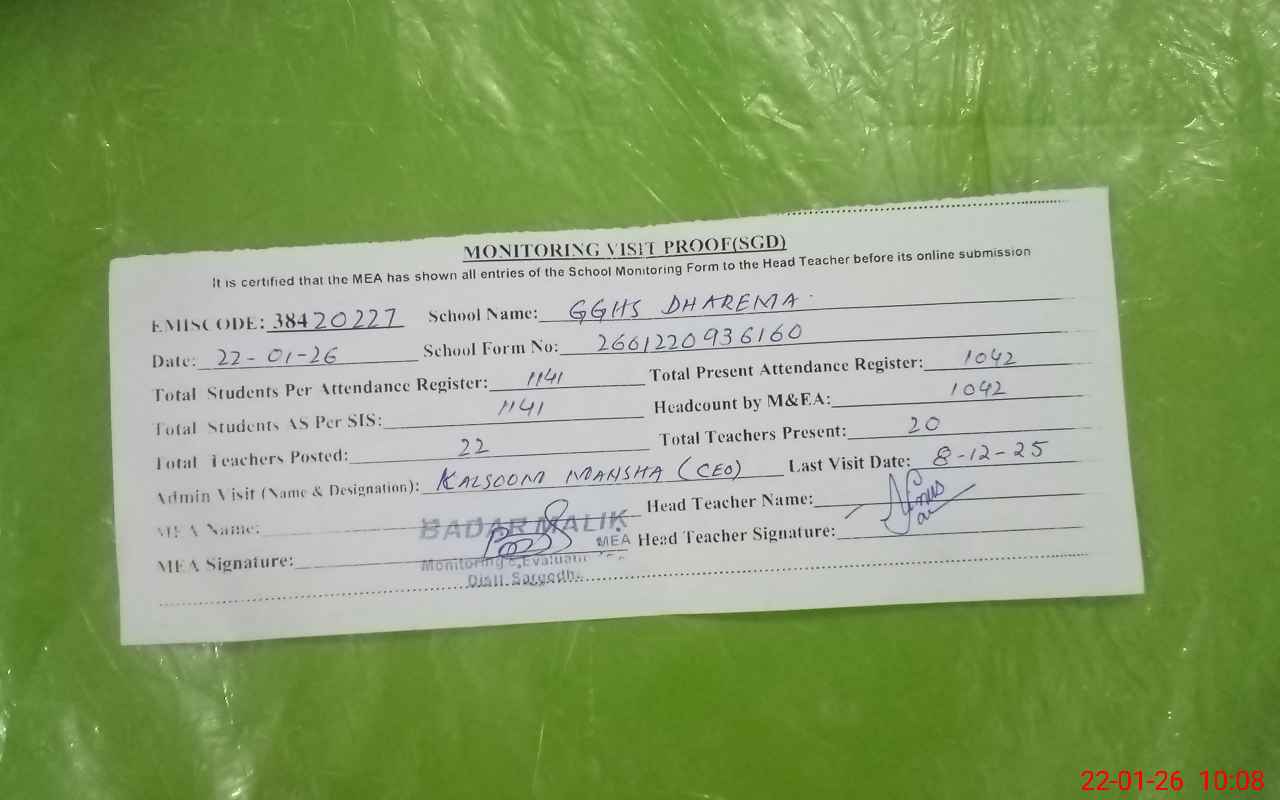 MONITORING VISIT PROOF(SGD)
It is certified that the MEA has shown all entries of the School Monitoring Form to the Head Teacher before its online submission
EMISCODE: 38420227 School Name: GGHS DHAREMA
Date: 22-01-26 School Form No: 2661220936160
Total Students Per Attendance Register: 1141 Total Present Attendance Register: 1042
Total Students AS Per SIS: 1141 Headcount by M&EA: 1042
Total Teachers Posted: 22 Total Teachers Present: 20
Admin Visit (Name & Designation): KALSOOM MANSHA (CEO) Last Visit Date: 8-12-25
MEA Name: BADAR MALIK Head Teacher Name:
MEA Signature: MEA Head Teacher Signature:
Monitoring &
22-01-26 10:08